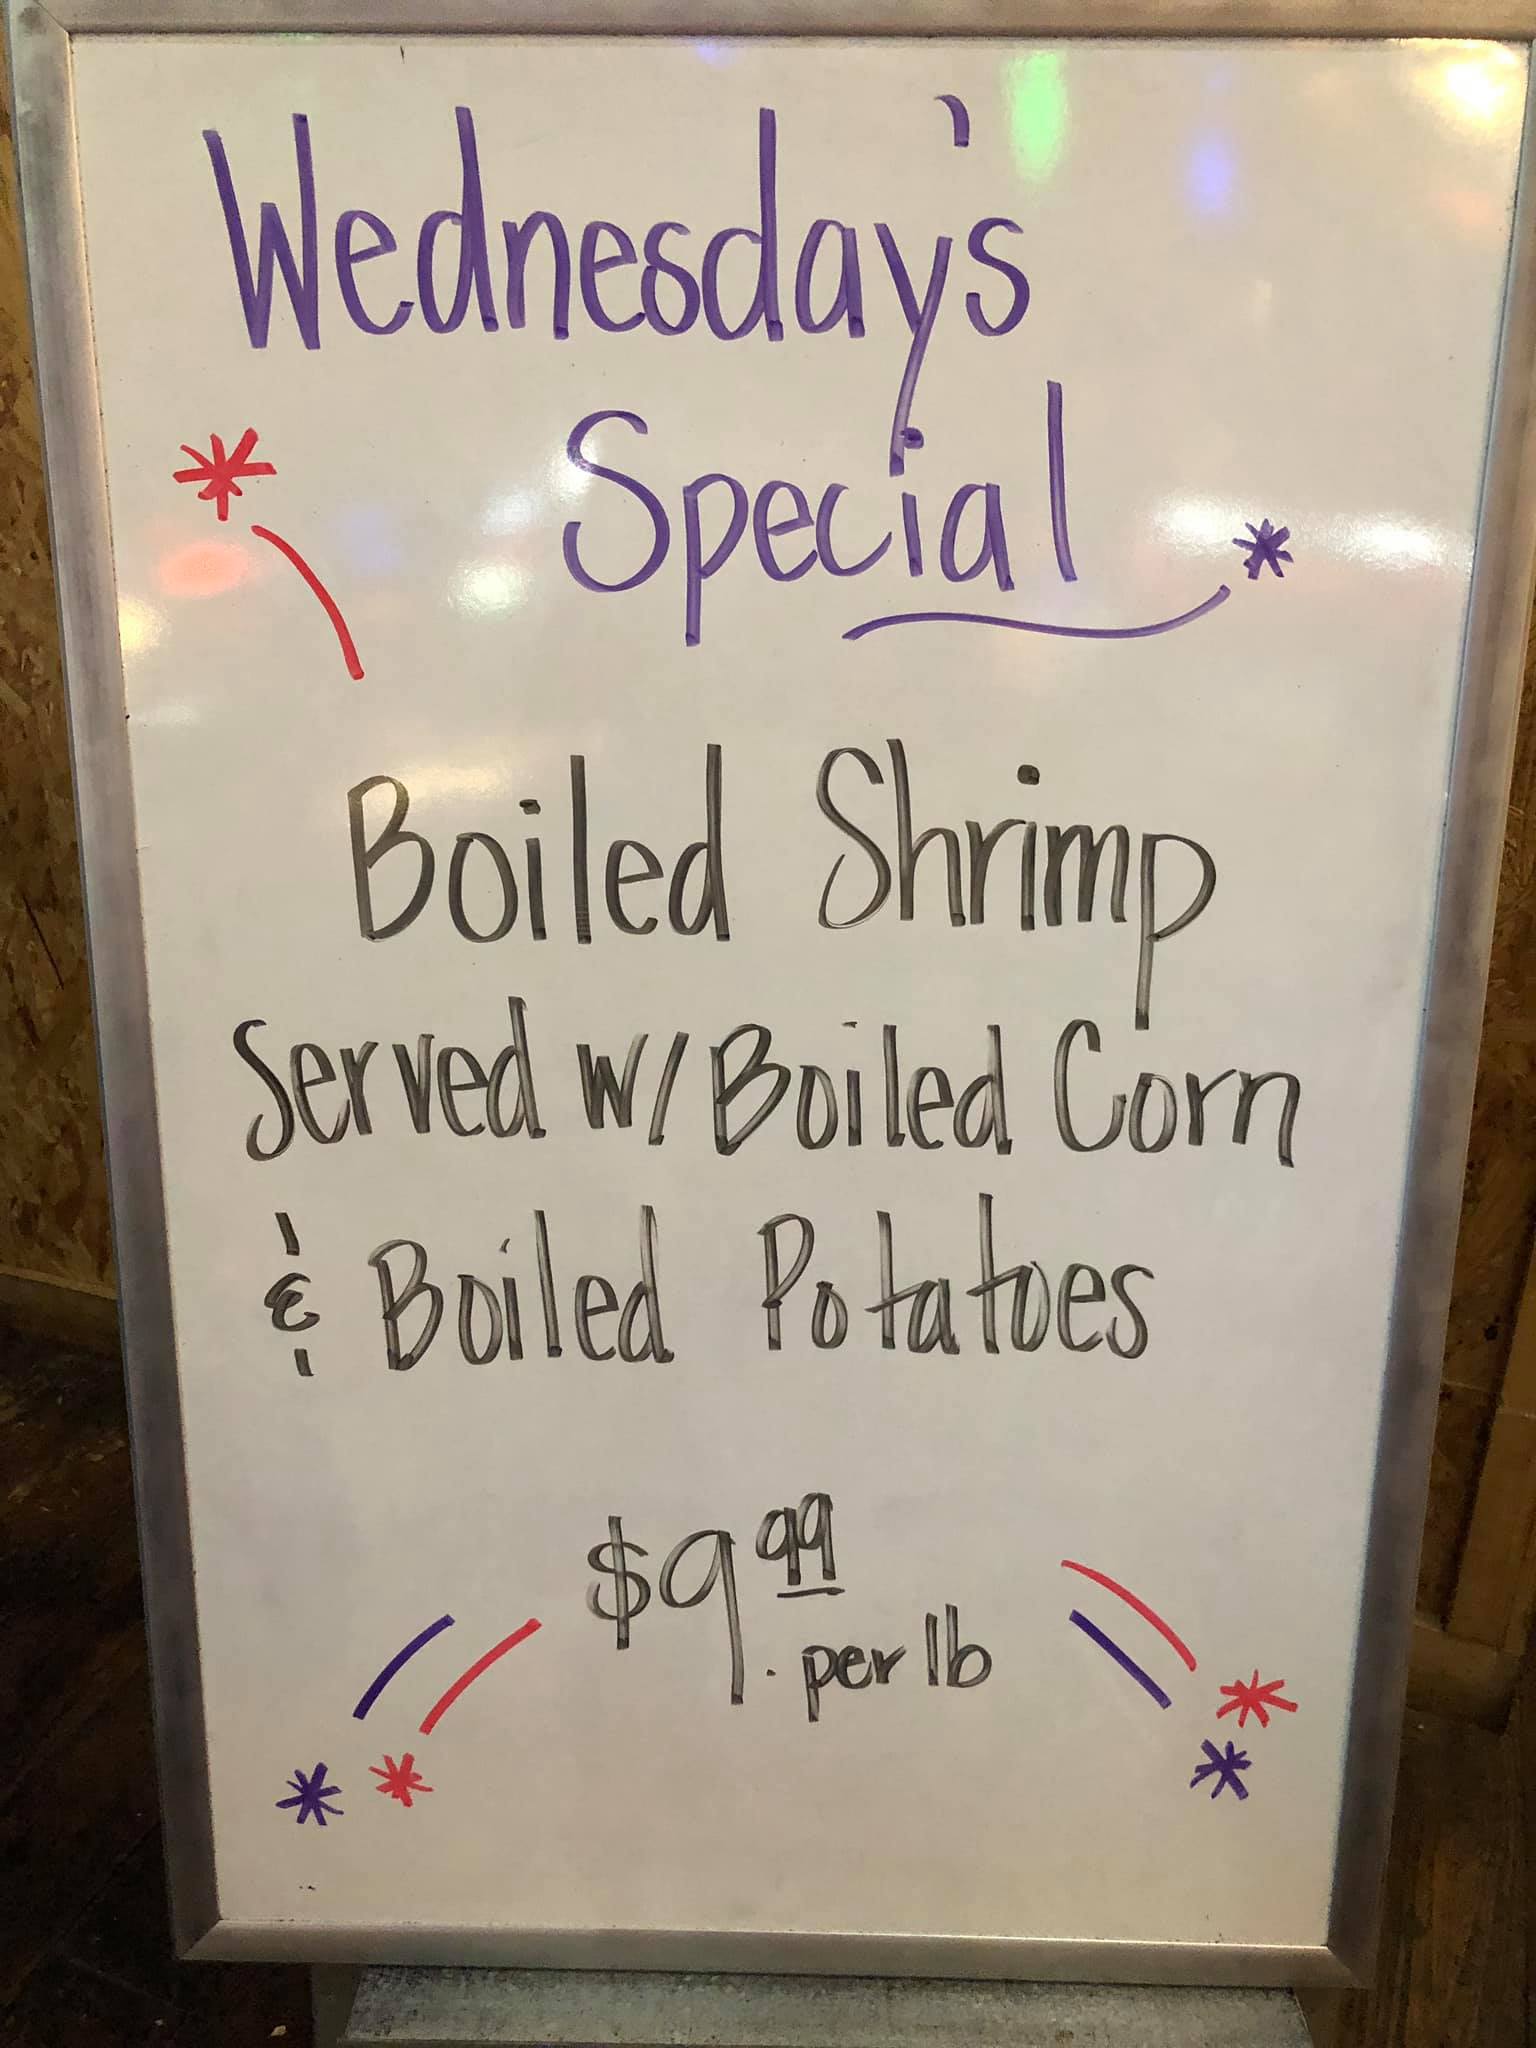 Wednesday's
Special
Boiled Shrimp
Served w/ Boiled Corn
& Boiled Potatoes
$9.99
per lb